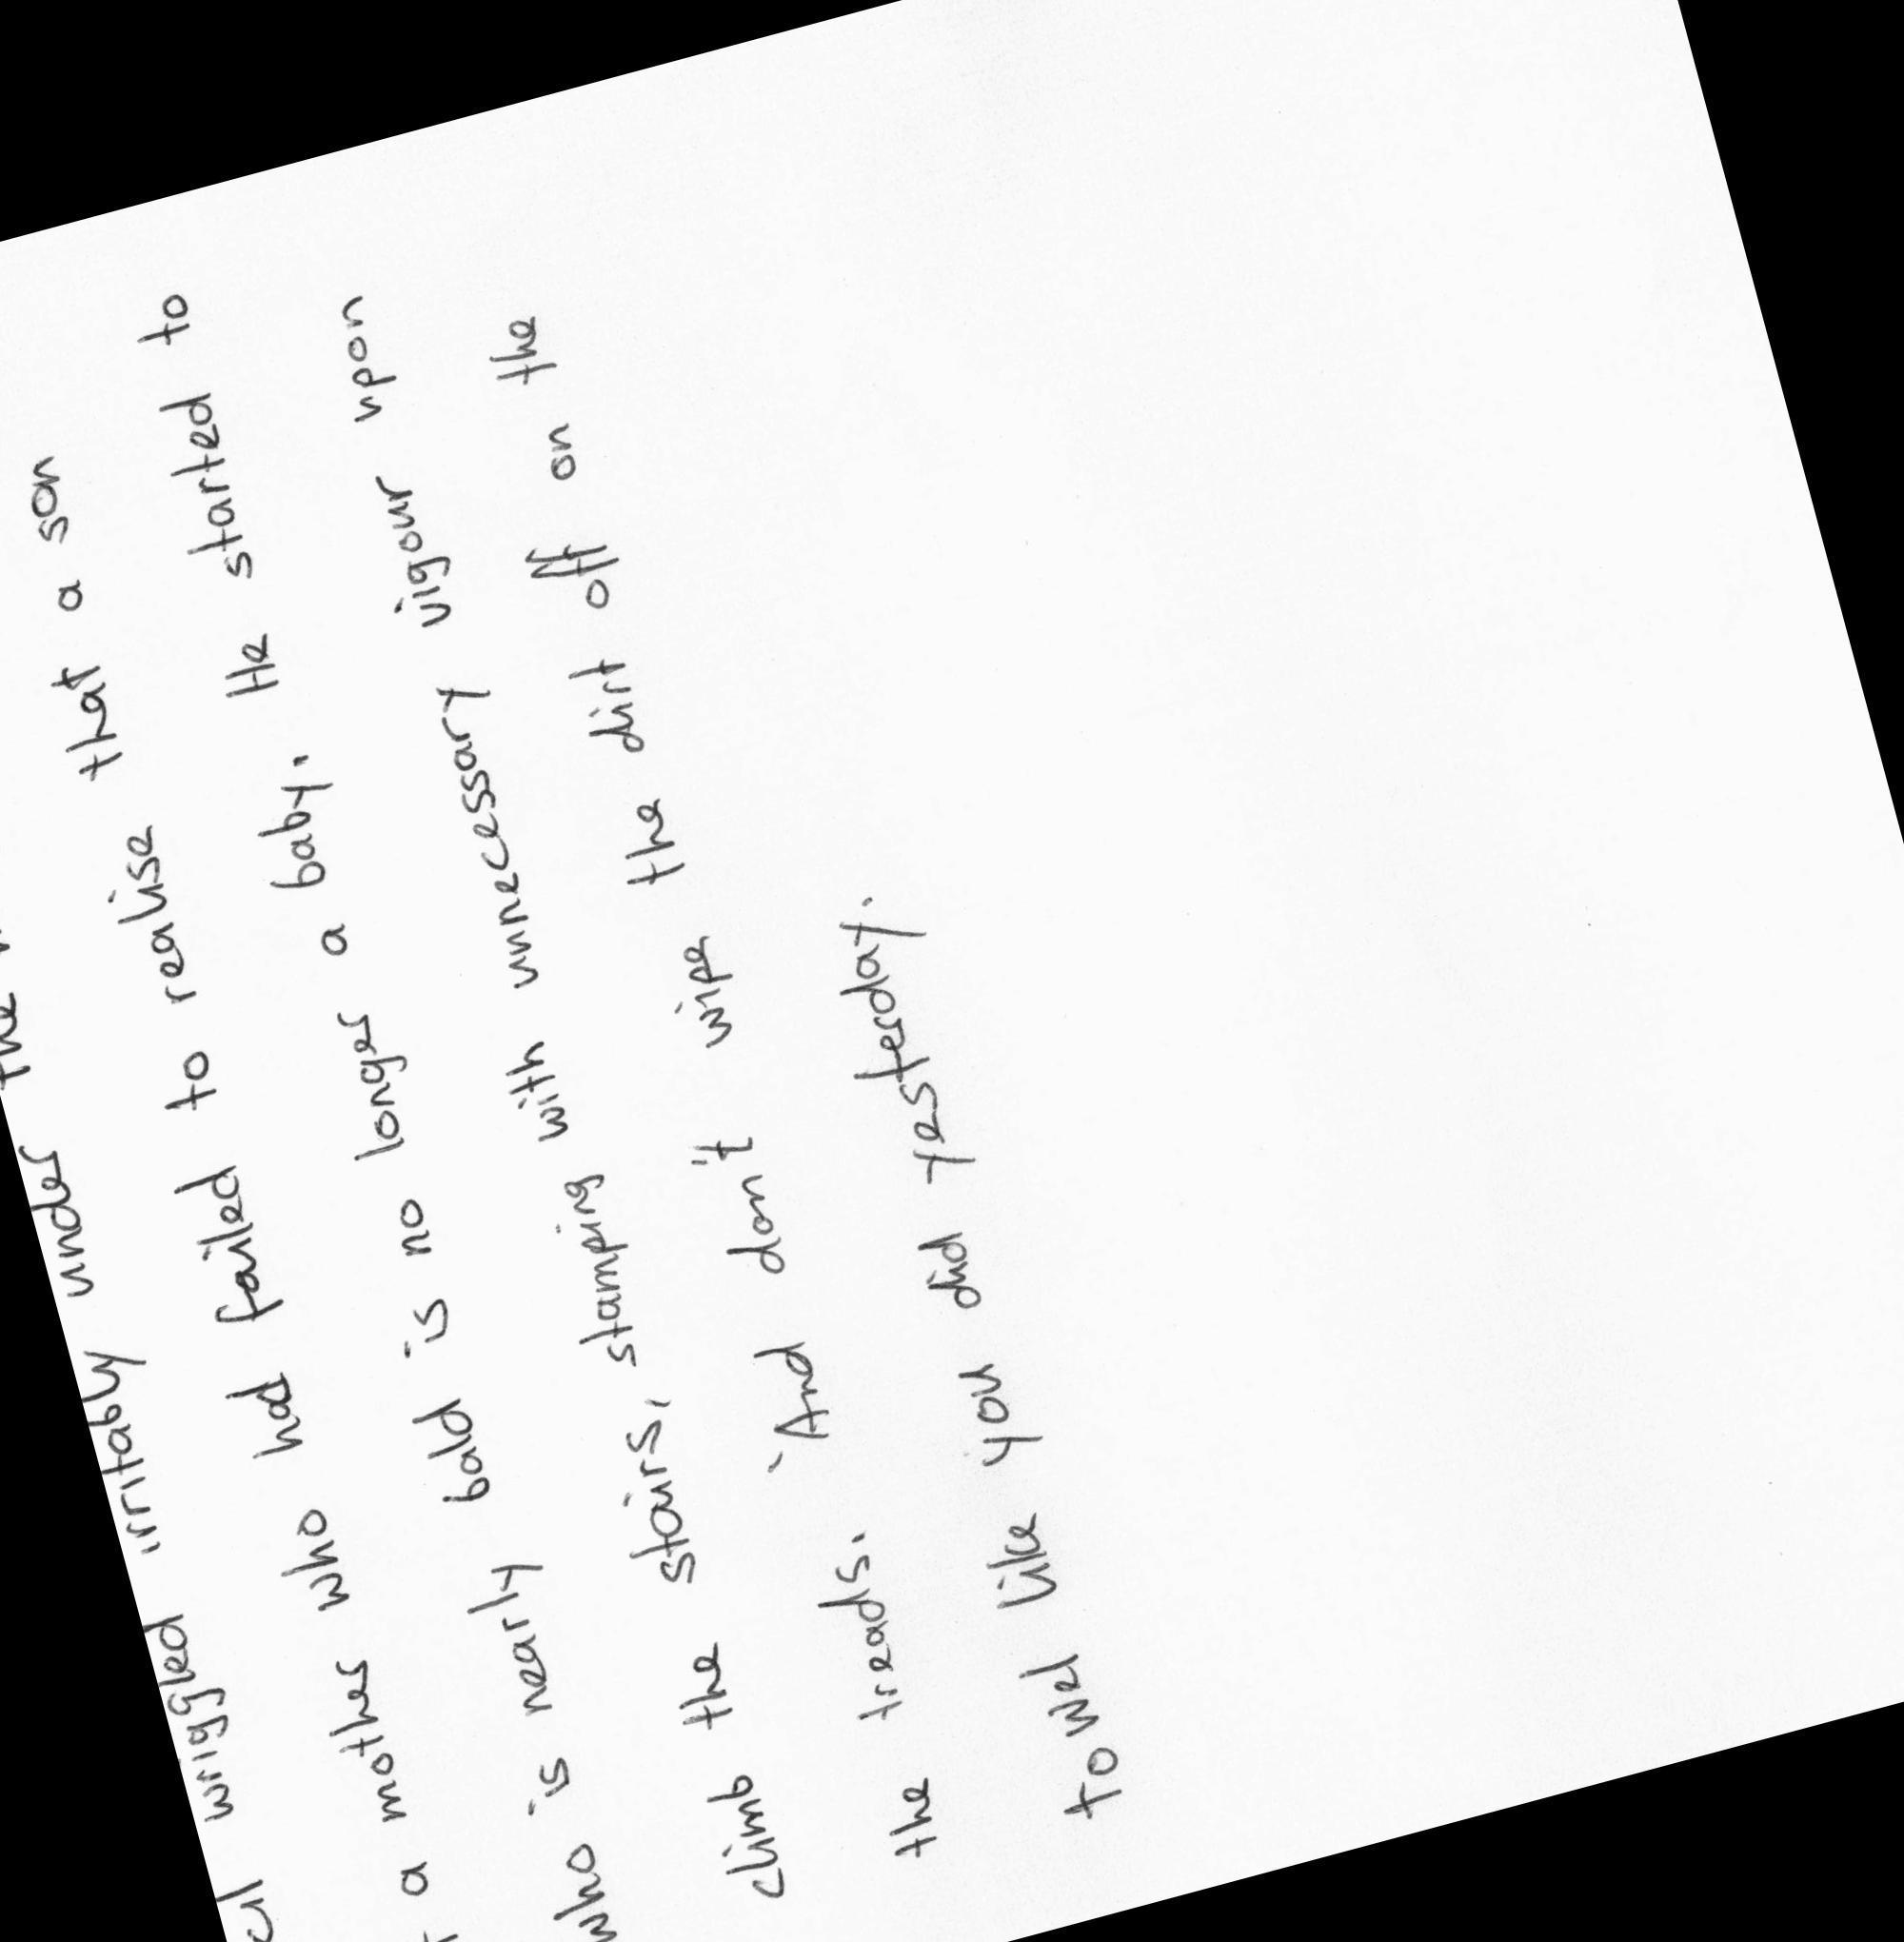 wriggled irritably under the
a mother who had failed to realise that a son
who is nearly bald is no longer a baby. He started to
climb the stairs, stamping with unnecessary vigour upon
the treads. 'And don't wipe the dirt off on the
towel like you did yesterday.